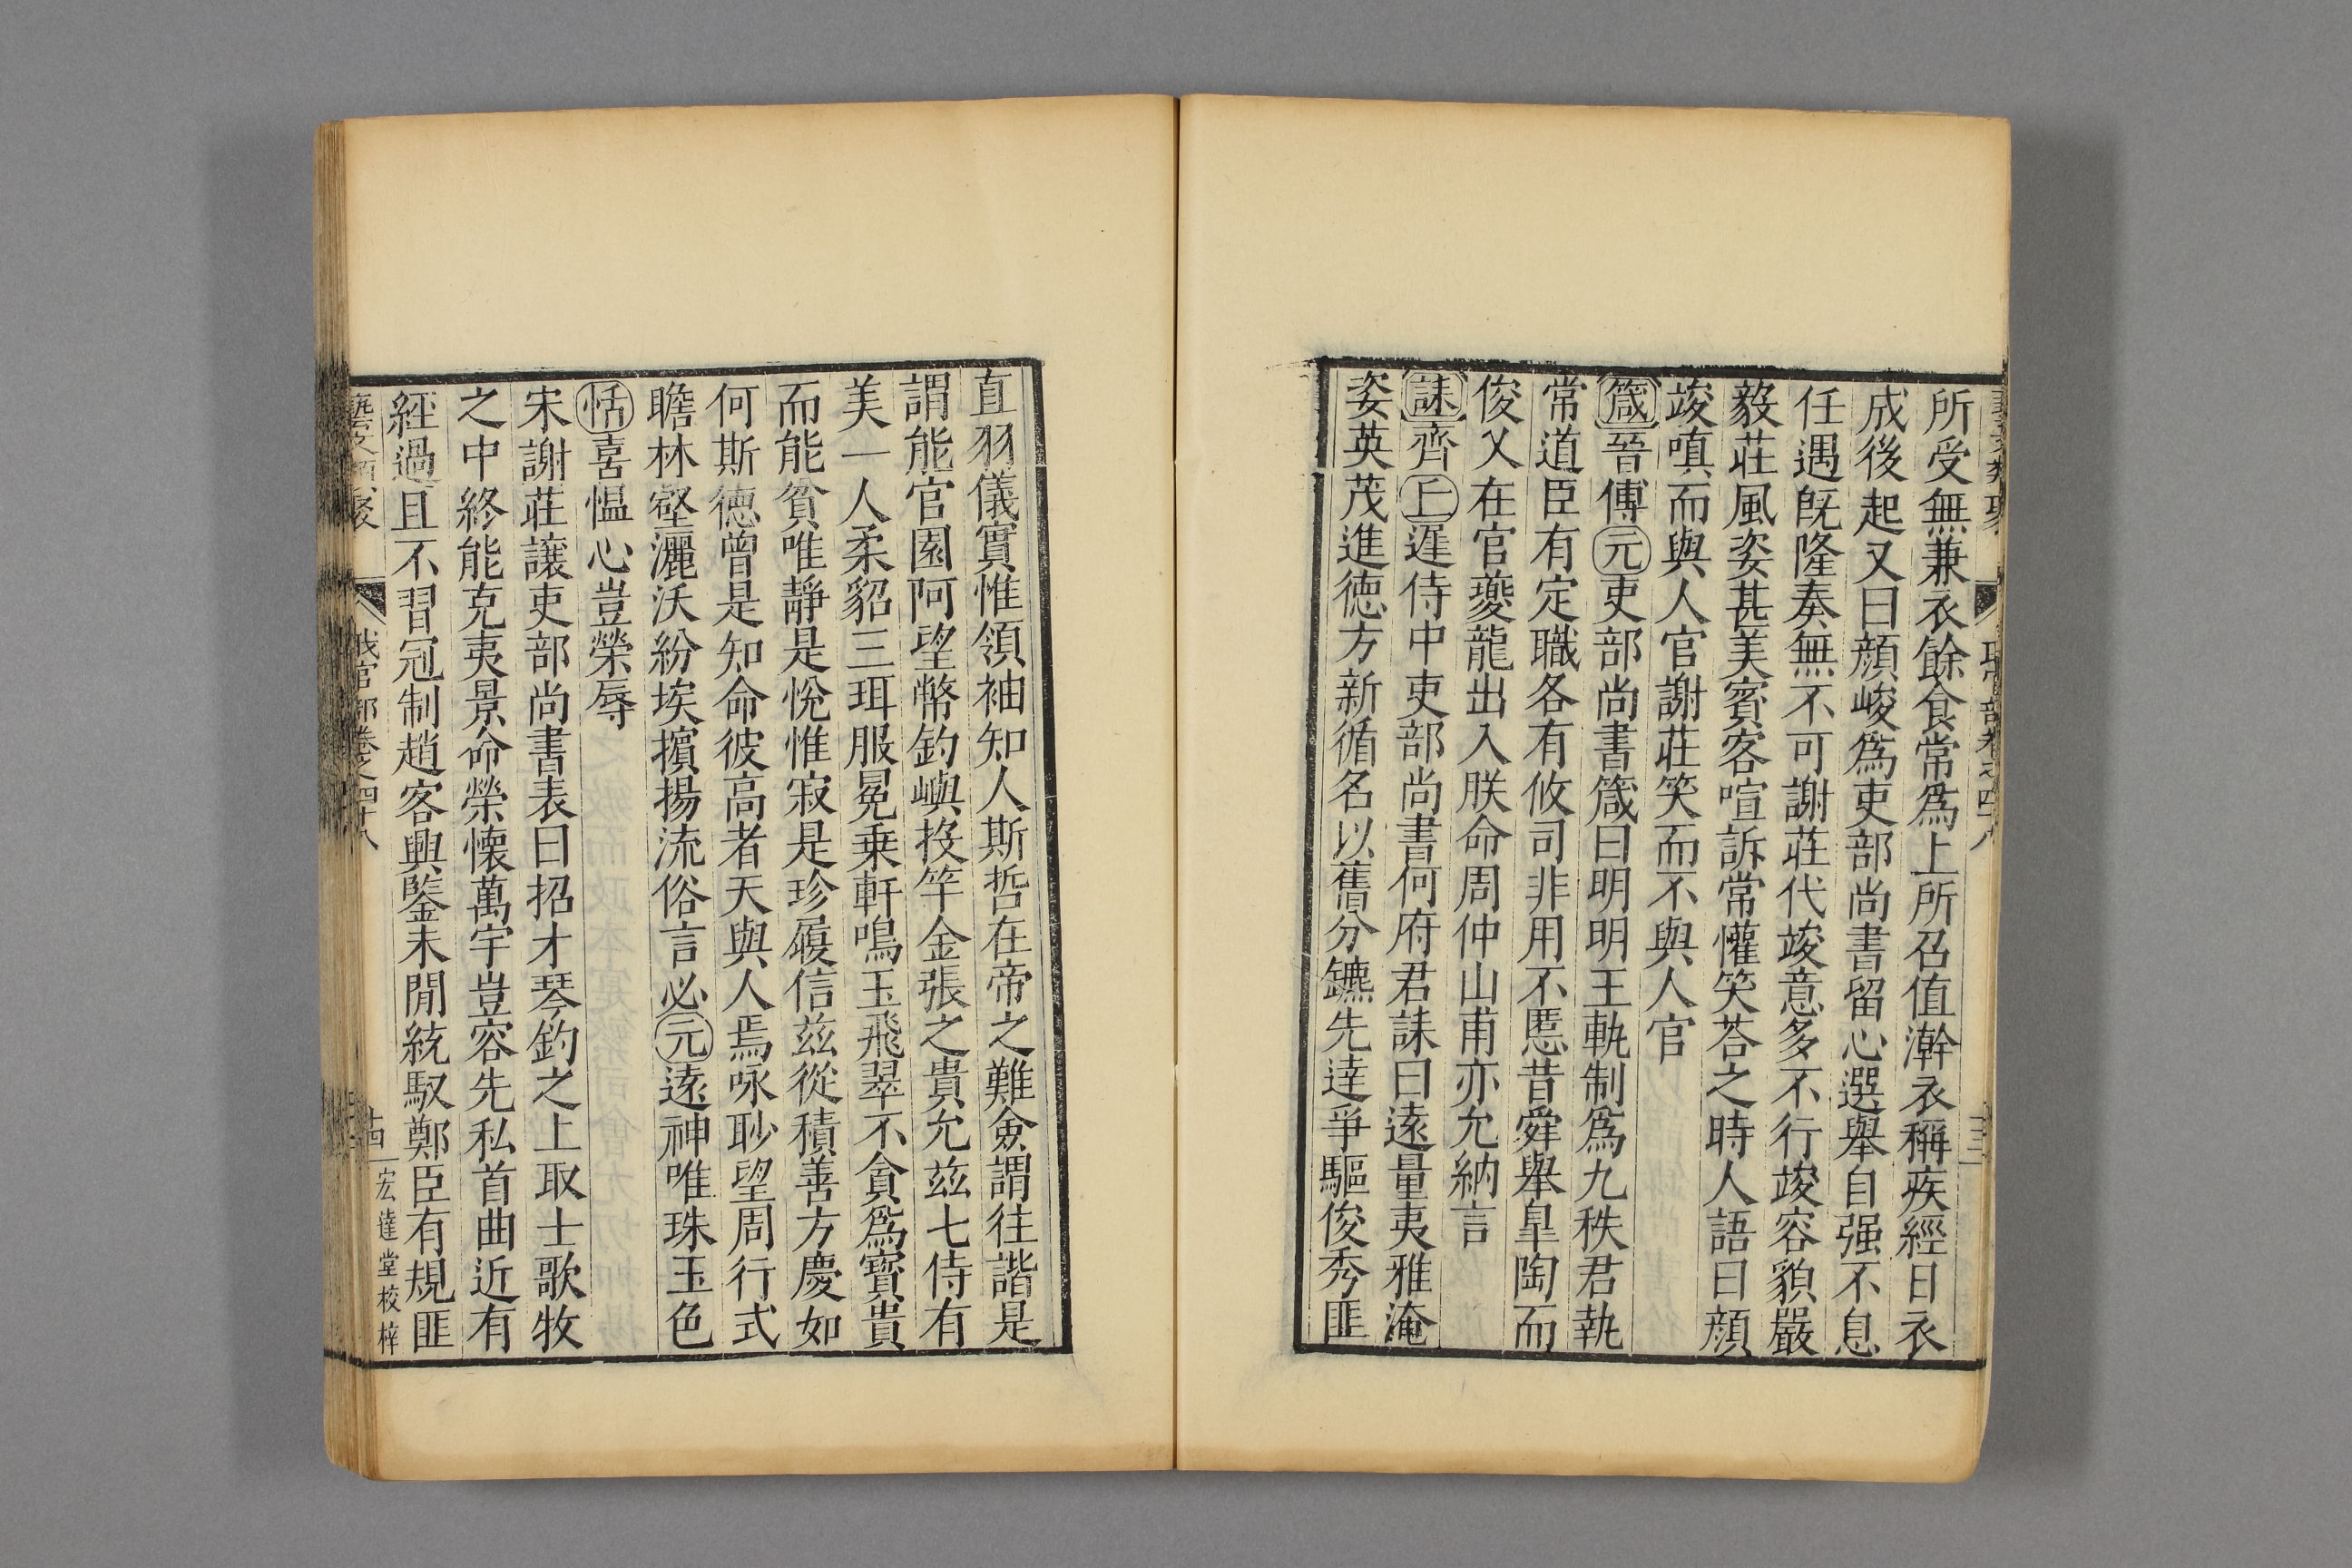 所受無兼衣餘食常爲上所召值澣衣稱疾經日衣
成後起又曰顏峻爲吏部尚書留心選舉自强不息
任遇旣隆奏無不可謝莊代竣意多不行竣容貌嚴
毅莊風姿甚美賓客喧訴常懽笑荅之時人語曰顏
竣嗔而與人官謝莊笑而不與人官
箴晉傅元吏部尚書箴曰明明王軌制爲九秩君執
常道臣有定職各有攸司非用不慝昔舜舉臯陶而
俊乂在官夔龍出入朕命周仲山甫亦允納言
誄齊丘遲侍中吏部尚書何府君誄曰遠量夷雅淹
姿英茂進德方新循名以舊分鑣先達爭驅俊秀匪
直羽儀實惟領袖知人斯哲在帝之難僉謂往諧是
謂能官園阿望幣釣嶼投竿金張之貴允茲七侍有
美一人柔貂三珥服冕乗軒鳴玉飛翠不貪爲寶貴
而能貧唯靜是悅惟寂是珍履信茲從積善方慶如
何斯德曾是知命彼高者天與人焉咏眇望周行式
瞻林壑灑沃紛埃擯揚流俗言必元遠神唯珠玉色
恬喜慍心豈榮辱
宋謝莊讓吏部尚書表曰招才琴釣之上取士歌牧
之中終能克夷景命榮懷萬宇豈容先私首曲近有
經過且不習冠制趙客興鑒未閒統馭鄭臣有規匪
藝文類聚 職官部卷之四十八 十四 宏達堂校梓